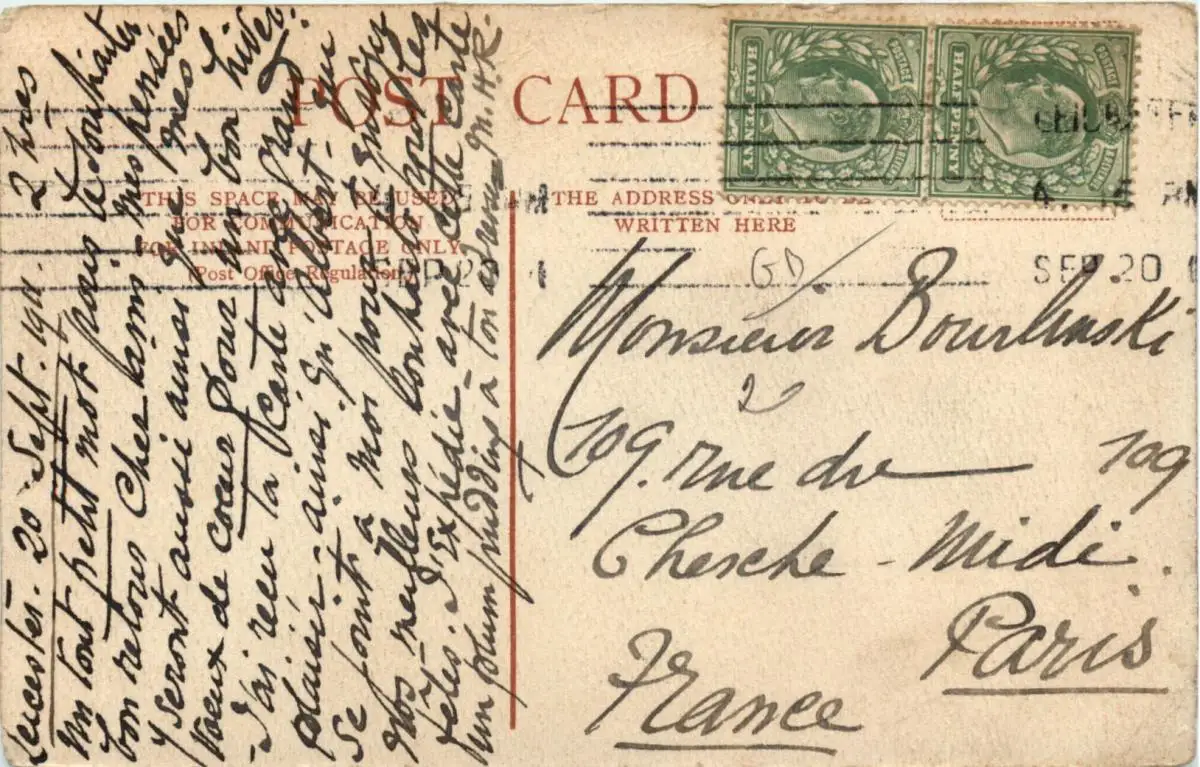 POST CARD
THIS SPACE MAY BE USED
FOR COMMUNICATION
FOR INLAND POSTAGE ONLY.
(Post Office Regulation.)
THE ADDRESS ONLY TO BE
WRITTEN HERE
POSTAGE
HALF PENNY
POSTAGE
HALF PENNY
LEICESTER
SEP 20
SEP 20
GD
Monsieur Bourlinski
109. rue du 109
Cherche-Midi.
Paris
France
Leicester. 20 Sept. 2 hrs
Un tout petit mot pour te souhaiter
bon retour Cher ami mes pensées
y seront aussi ainsi que mes
voeux de coeur pour un bon hiver.
J'ai reçu ta carte avec grand
plaisir ainsi qu'Albert qui
se joint à moi pour envoyer
nos meilleurs
J'Expédie avec cette carte
un plum pudding à ton adresse